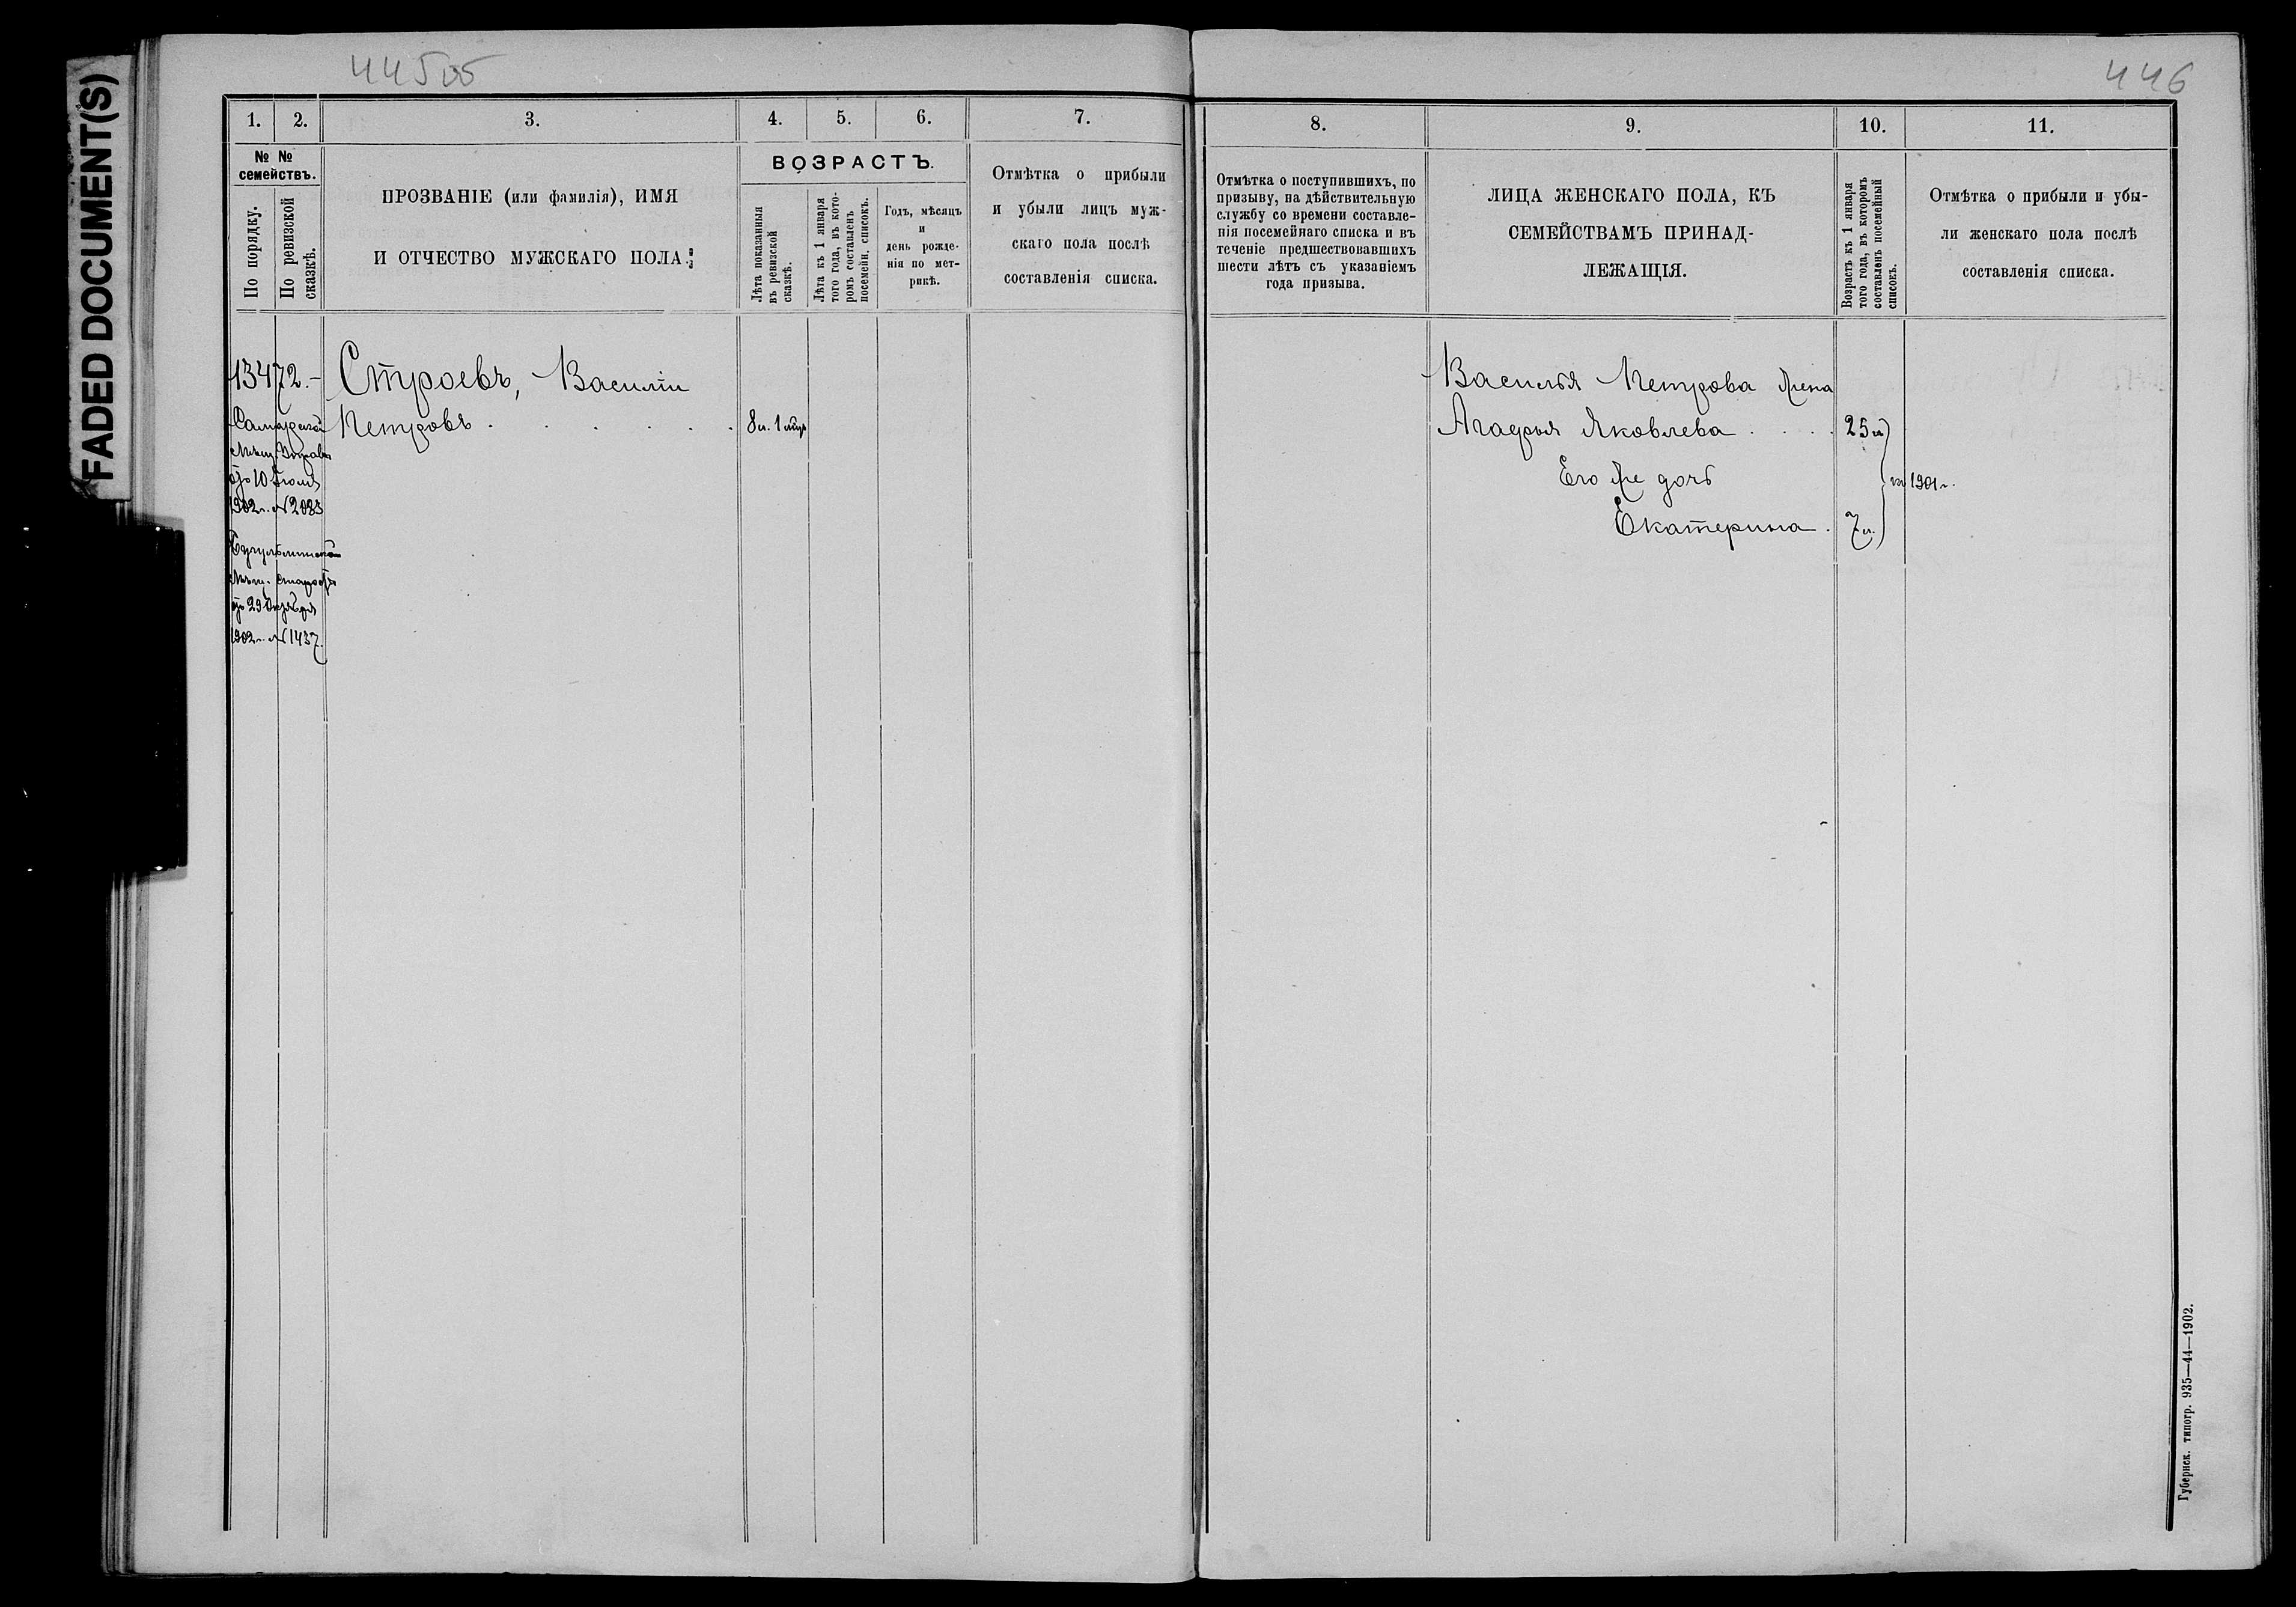 FADED DOCUMENT(S)
445 об
446
1.
2.
3.
4.
5.
6.
7.
№ №
семействъ.
По порядку.
По ревизской
сказкѣ.
ПРОЗВАНІЕ (или фамилія), ИМЯ
И ОТЧЕСТВО МУЖСКАГО ПОЛА.
ВОЗРАСТЪ.
Лѣта показанныя
въ ревизской
сказкѣ.
Лѣта къ 1 января
того года, въ кото-
ромъ составленъ
посемейн. списокъ.
Годъ, мѣсяцъ
и
день рожде-
нія по мет-
рикѣ.
Отмѣтка о прибыли
и убыли лицъ муж-
скаго пола послѣ
составленія списка.
13472.–
Строевъ, Василій
Петровъ . . . . . .
8 л. 1 мѣс
Самарской
Мѣщ. Управы
отъ 10 Іюля
1902 г. № 2083
Бугульминской
Мѣщ. старосты
отъ 29 Октября
1902 г. № 1437.
8.
9.
10.
11.
Отмѣтка о поступившихъ, по
призыву, на дѣйствительную
службу со времени составле-
нія посемейнаго списка и въ
теченіе предшествовавшихъ
шести лѣтъ съ указаніемъ
года призыва.
ЛИЦА ЖЕНСКАГО ПОЛА, КЪ
СЕМЕЙСТВАМЪ ПРИНАД-
ЛЕЖАЩІЯ.
Возрастъ къ 1 января
того года, въ которомъ
составленъ посемейный
списокъ.
Отмѣтка о прибыли и убы-
ли женскаго пола послѣ
составленія списка.
Василья Петрова жена
Агафья Яковлева . . . . 25 л
Его же дочь
1901 г.
Екатерина . 7 л.
Губернск. типогр. 935—44—1902.